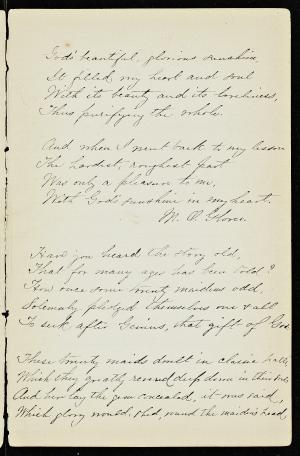 God's beautiful, glorious sunshine,
It filled my heart and soul
With its beauty and its loveliness,
Thus purifying the whole.
And when I went back to my lesson
The hardest, roughest part
Was only a pleasure to me,
With God's sunshine in my heart.
M. O. Glover.
Have you heard the story old,
That for many ages has been told?
How once some twenty maidens odd,
Solemnly pledged themselves one & all
To seek after Genius, that gift of God.
These twenty maids dwelt in classic halls,
Which they greatly deep down in their
And here lay the gem concealed, it was said,
Which glory would shed, round the maiden's head,